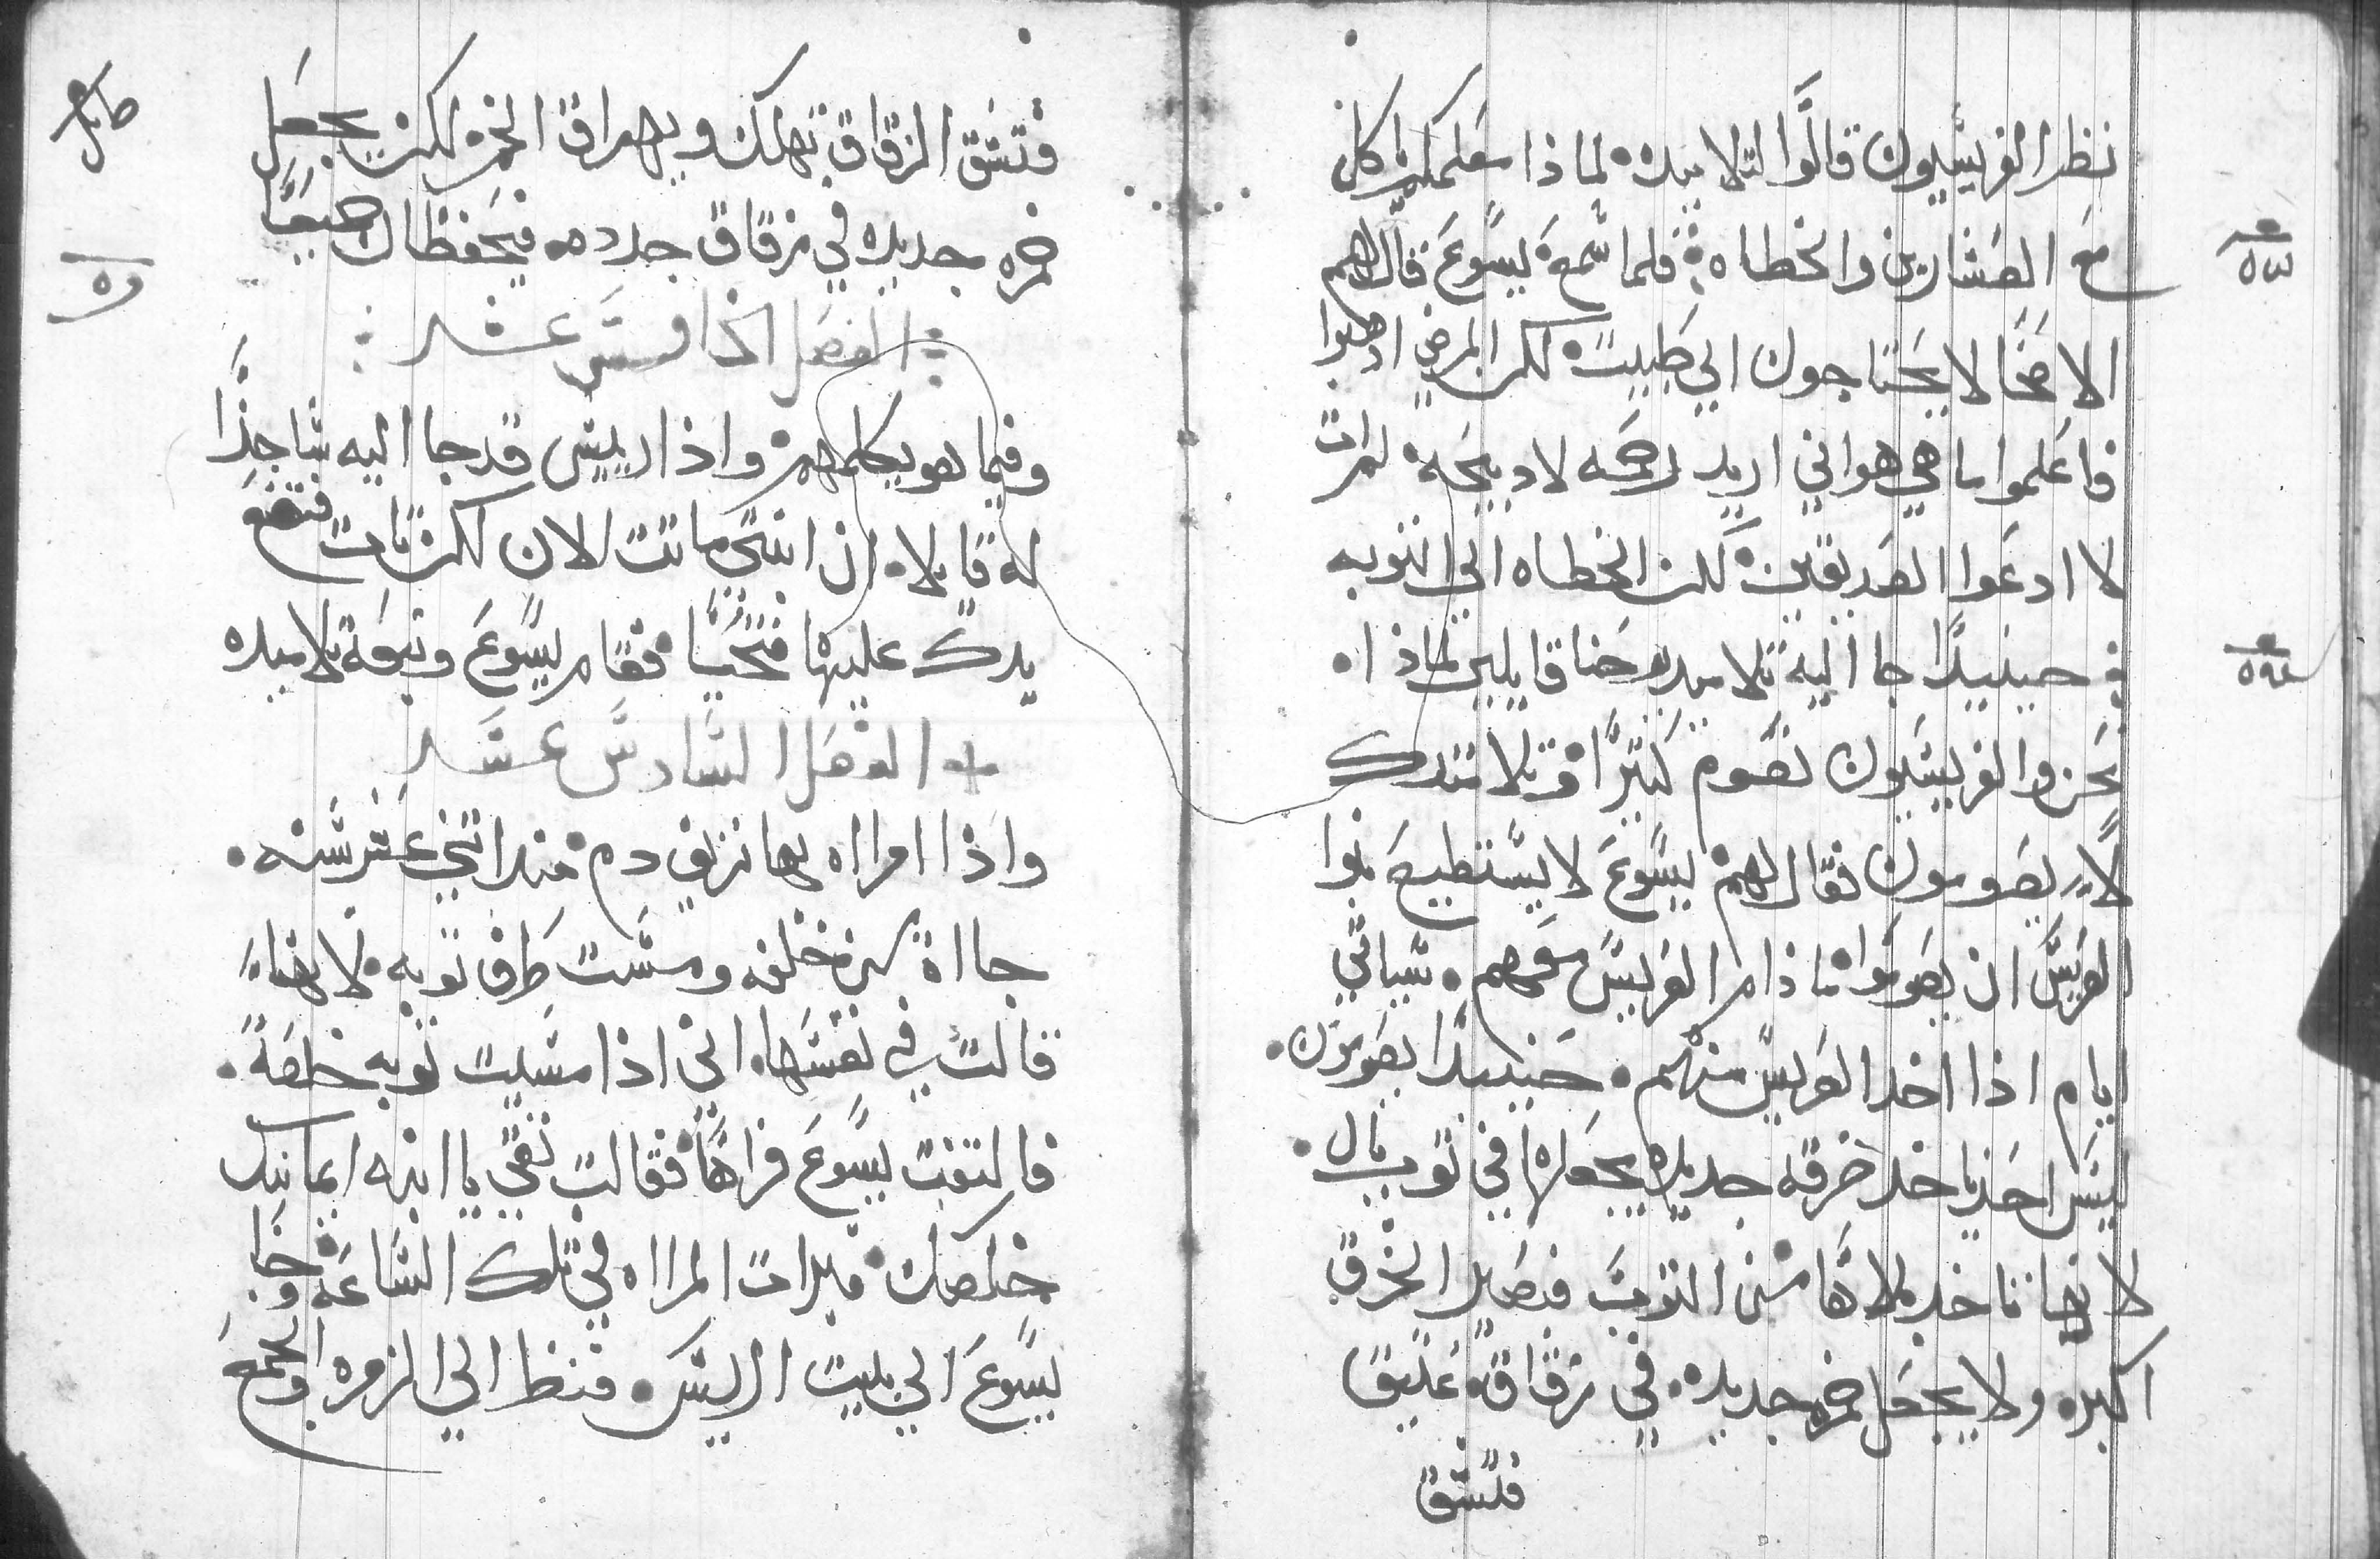 نظر الفريسيون قالوا لتلاميده لماذا معلمكم ياكل
مع العشارين والخطاه فلما سمع يسوع قال لهم
الاصحا لا يحتاجون الي طبيب لكن المرضي ادهبوا
فاعلموا ما هي هو اني اريد رحمه لا دبيحه لم ات
لا ادعوا الصديقين لكن الخطاه الي التوبه
حينيدا جا اليه تلاميد يوحنا قايلين لماذا
نحن والفريسيون نصوم كتيرا وتلاميدك
لا يصومون فقال لهم يسوع لا يستطيع بنوا
العريس ان يصوموا ماذام العريس معهم ستاتي
ايام اذا اخد العريس منهم حينيدا يصومون
ليس احد ياخد خرقه جديده يجعلها في توب بال
لانها تاخد ملاها من التوب فيصير الخرق
اكبره ولا يجعل خمره جديده في زقاق عتيق
فتشق
فتشق الزقاق تهلك ويهراق الخمر لكن يجعل
خمره جديده في زقاق جدده فيحفظان جميعا
الفصل الخامس عشر
وفيما هو يكلمهم واذا رييس قد جا اليه ساجدا
له قايلا ان ابنتي ماتت الان لكن تات فتضع
يدك عليها فتحيا فقام يسوع وتبعه تلاميده
الفصل السادس عشر
واذا امراه بها نزيف دم مند اتني عشر سنه
جااة من خلفه ومست طرف توبه لانها
قالت في نفسها اني اذا مسيت توبه خلصة
فالتفت يسوع فراها فقالت تقي يا ابنه ايمانك
خلصك فبرات المراه في تلك الساعه وجا
يسوع الي بيت الرييس فنظر الي الزمره والجمع